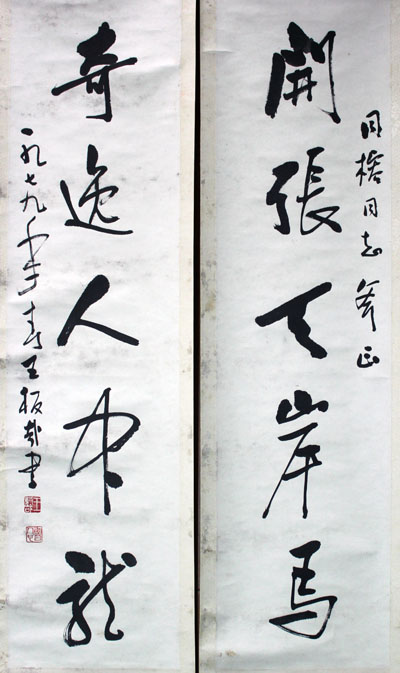 開張天岸馬
同楷同志斧正
奇逸人中龍
一九七九年春王板哉書